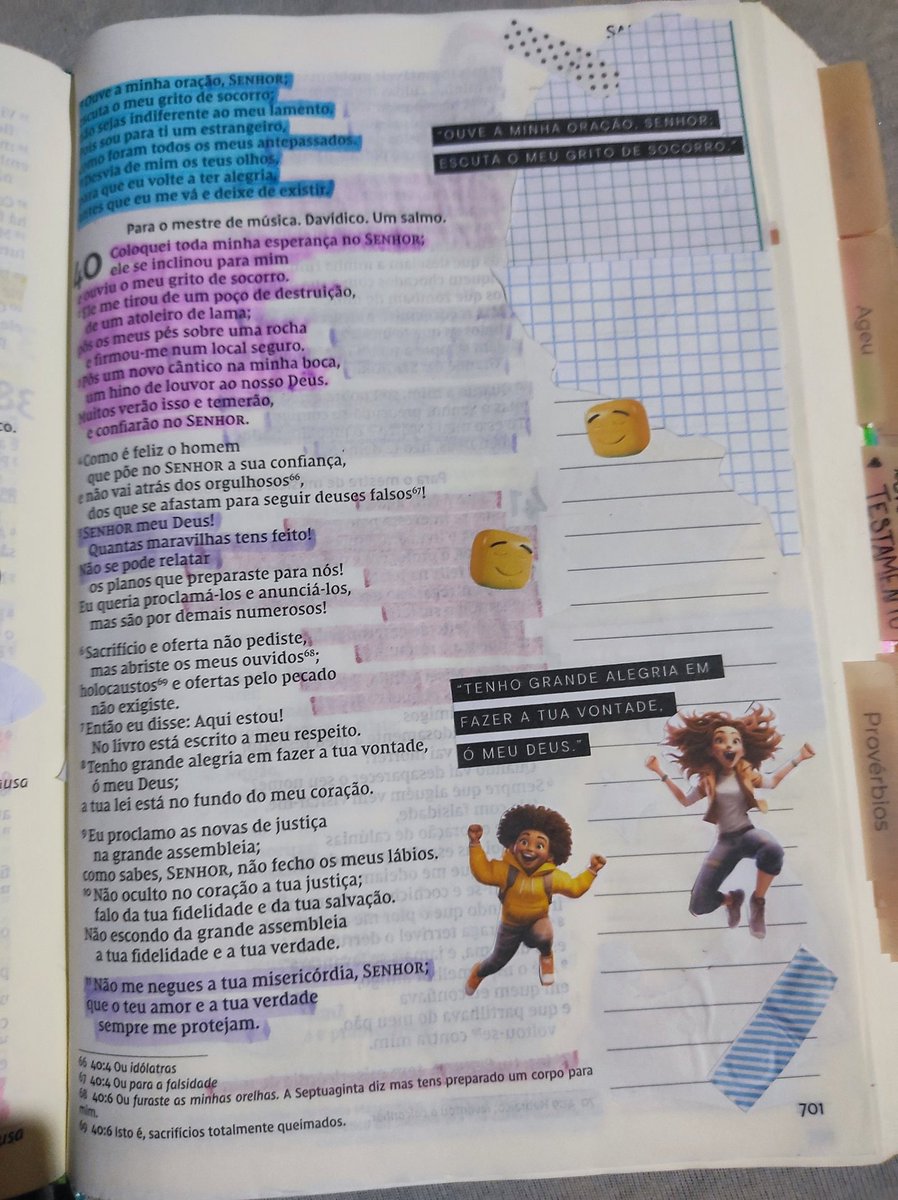 Ouve a minha oração, SENHOR;
escuta o meu grito de socorro;
não sejas indiferente ao meu lamento,
pois sou para ti um estrangeiro,
como foram todos os meus antepassados.
Desvia de mim os teus olhos,
para que eu volte a ter alegria,
antes que eu me vá e deixe de existir.
"OUVE A MINHA ORAÇÃO, SENHOR;
ESCUTA O MEU GRITO DE SOCORRO."
Para o mestre de música. Davídico. Um salmo.
40 Coloquei toda minha esperança no SENHOR;
ele se inclinou para mim
e ouviu o meu grito de socorro.
²Ele me tirou de um poço de destruição,
de um atoleiro de lama;
pôs os meus pés sobre uma rocha
e firmou-me num local seguro.
³Pôs um novo cântico na minha boca,
um hino de louvor ao nosso Deus.
Muitos verão isso e temerão,
e confiarão no SENHOR.
⁴Como é feliz o homem
que põe no SENHOR a sua confiança,
e não vai atrás dos orgulhosos⁶⁶,
dos que se afastam para seguir deuses falsos⁶⁷!
⁵SENHOR meu Deus!
Quantas maravilhas tens feito!
Não se pode relatar
os planos que preparaste para nós!
Eu queria proclamá-los e anunciá-los,
mas são por demais numerosos!
⁶Sacrifício e oferta não pediste,
mas abriste os meus ouvidos⁶⁸;
holocaustos⁶⁹ e ofertas pelo pecado
não exigiste.
⁷Então eu disse: Aqui estou!
No livro está escrito a meu respeito.
⁸Tenho grande alegria em fazer a tua vontade,
ó meu Deus;
a tua lei está no fundo do meu coração.
"TENHO GRANDE ALEGRIA EM
FAZER A TUA VONTADE,
Ó MEU DEUS."
⁹Eu proclamo as novas de justiça
na grande assembleia;
como sabes, SENHOR, não fecho os meus lábios.
¹⁰Não oculto no coração a tua justiça;
falo da tua fidelidade e da tua salvação.
Não escondo da grande assembleia
a tua fidelidade e a tua verdade.
¹¹Não me negues a tua misericórdia, SENHOR;
que o teu amor e a tua verdade
sempre me protejam.
66 40:4 Ou idólatras
67 40:4 Ou para a falsidade
68 40:6 Ou furaste as minhas orelhas. A Septuaginta diz mas tens preparado um corpo para
mim.
69 40:6 Isto é, sacrifícios totalmente queimados.
701
Ageu
TESTAMENTO
Provérbios